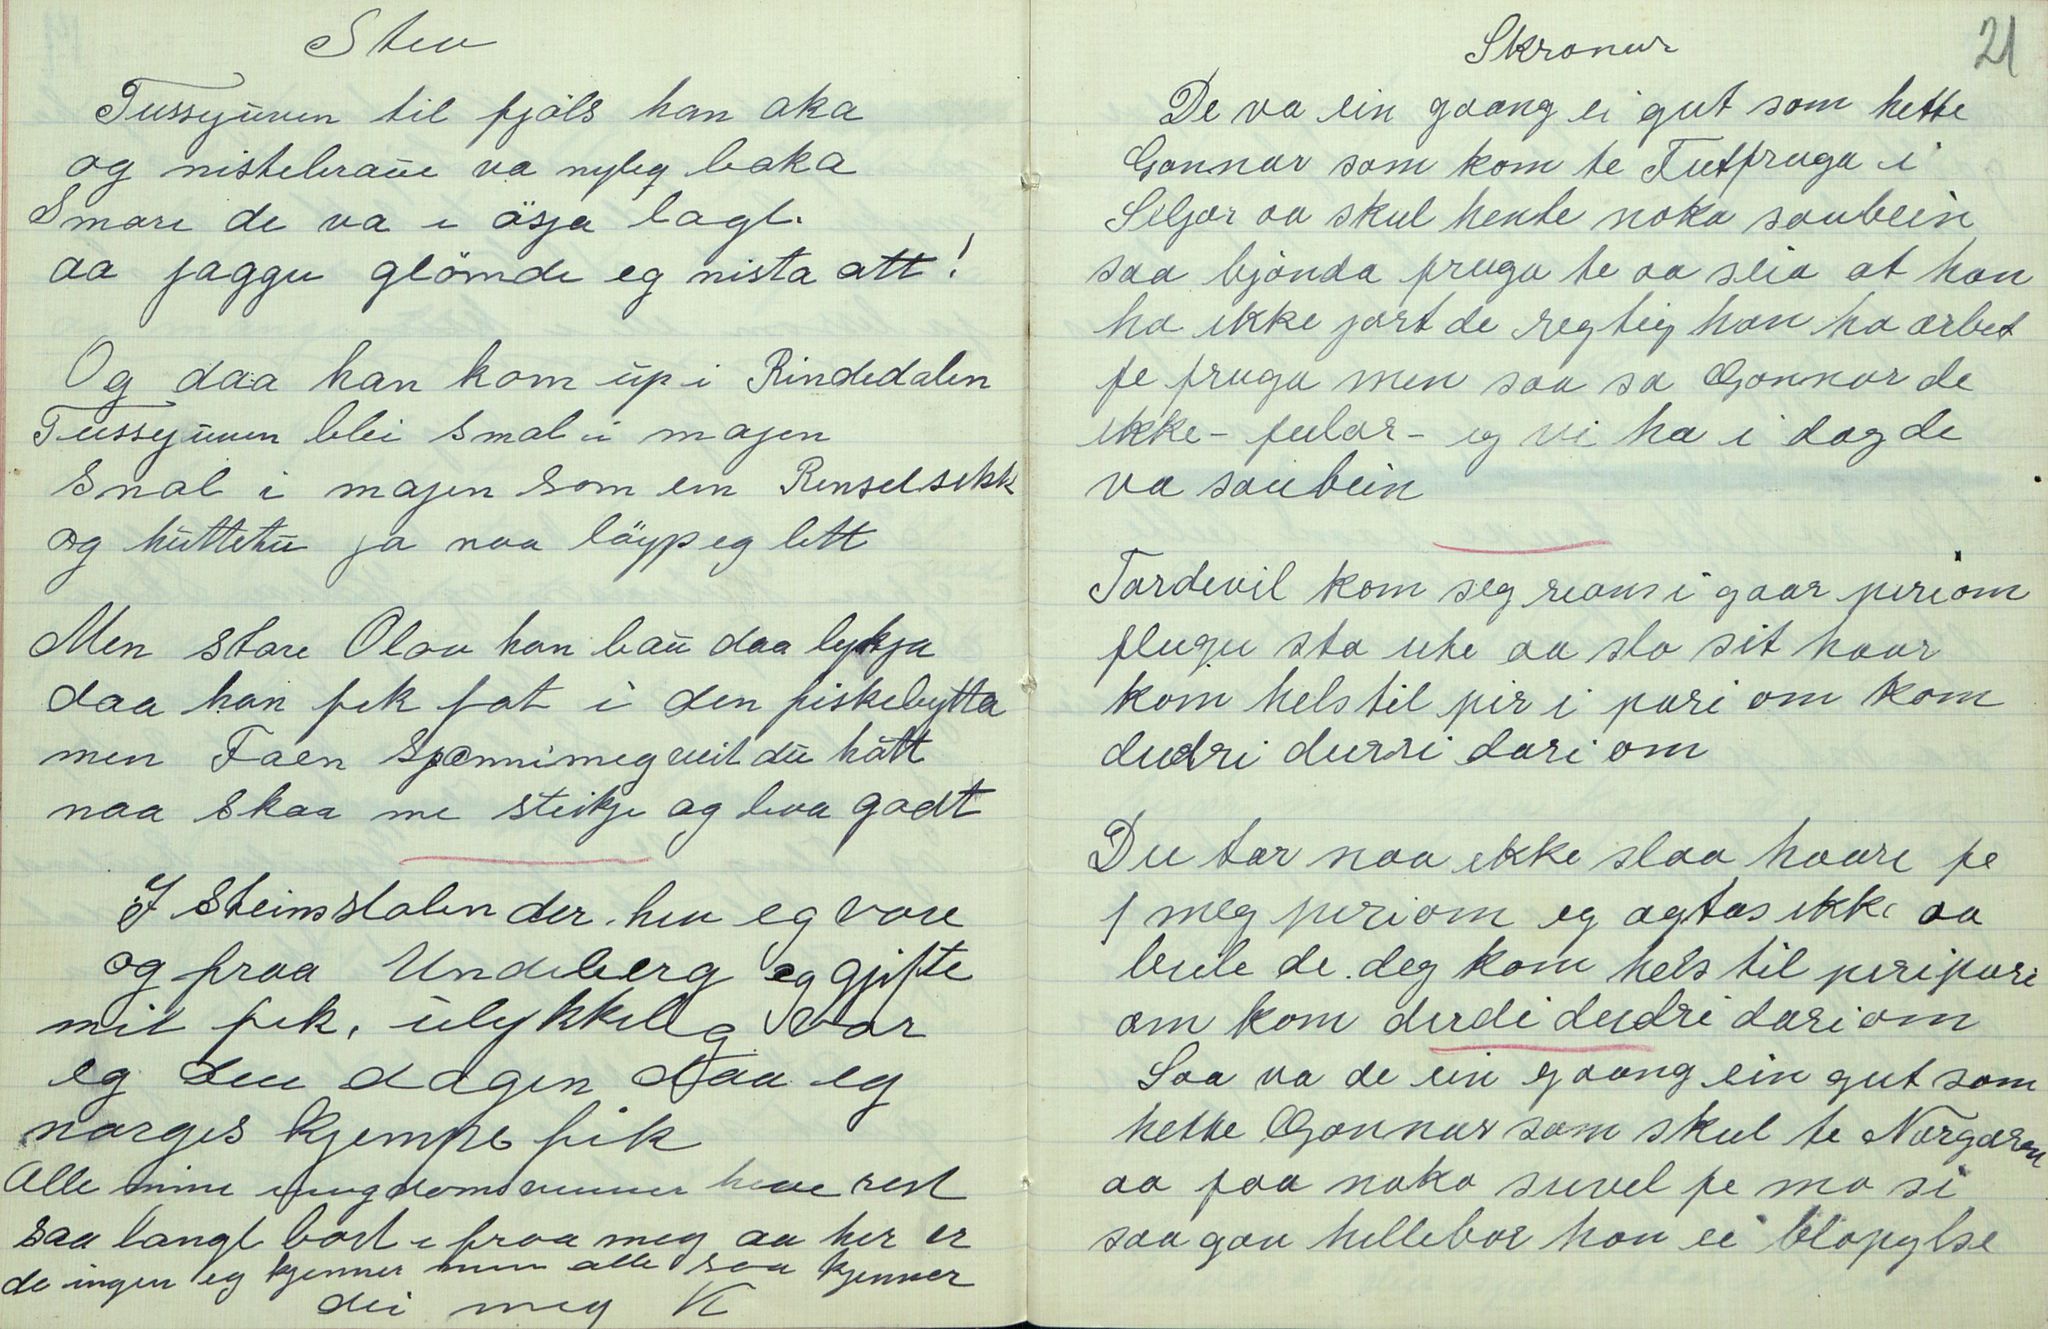 Stev
Tussejuven til fjøls han aka
og nistebraue va nyleg baka
Smøre de va i äsja lagt.
aa jaggu glömde eg nista att!
Og daa han kom üp i Rindedalen
Tussejuven blei smal i majen
Smal i majen som ein Renselsekk
og hüttetü ja naa läyp eg lett
Men store Olav han baü daa lykja
daa han fek fat i den fiskebytta
men Faen spænnimeg veit dü hått
naa skaa me steikje og leva godt
I Steinsstølen der hev eg vore
og fraa Undeberg eg gjifte
mit fek. ülykkeleg var
eg den dagen daa eg
norges kjempe fik
Alle mine ungdomsvenner heve rest
saa langt bort i fraa meg aa her er
de ingen eg kjenner men alle saa kjenner
dei meg K
21
Skronur
De va ein gaang ei gut som hette
Gonnar som kom te Futfruga i
Seljor aa skul hente noko saubein
saa bjonda fruga te aa seia at han
ha ikke jort de regtig han ha arbet
fe fruga men saa sa Gonnar de
ikke - fular - eg vi ha i dag de
va saubein
Tordevil kom seg reans i gaar piriom
flugu sto ute aa slo sit haar
kom hels til pir i pari om kom
dudri durri dari om
Du tor naa ikke slaa haare fe
meg piriom eg agtas ikke aa
bule de deg kom hels til piripari
om kom dirdi dudri dari om
Saa va de ein gaang ein gut som
hette Gonnar som skul te Norgaren
aa faa noko suvel fe mo si
saa gav hellebor hon ei blopylse